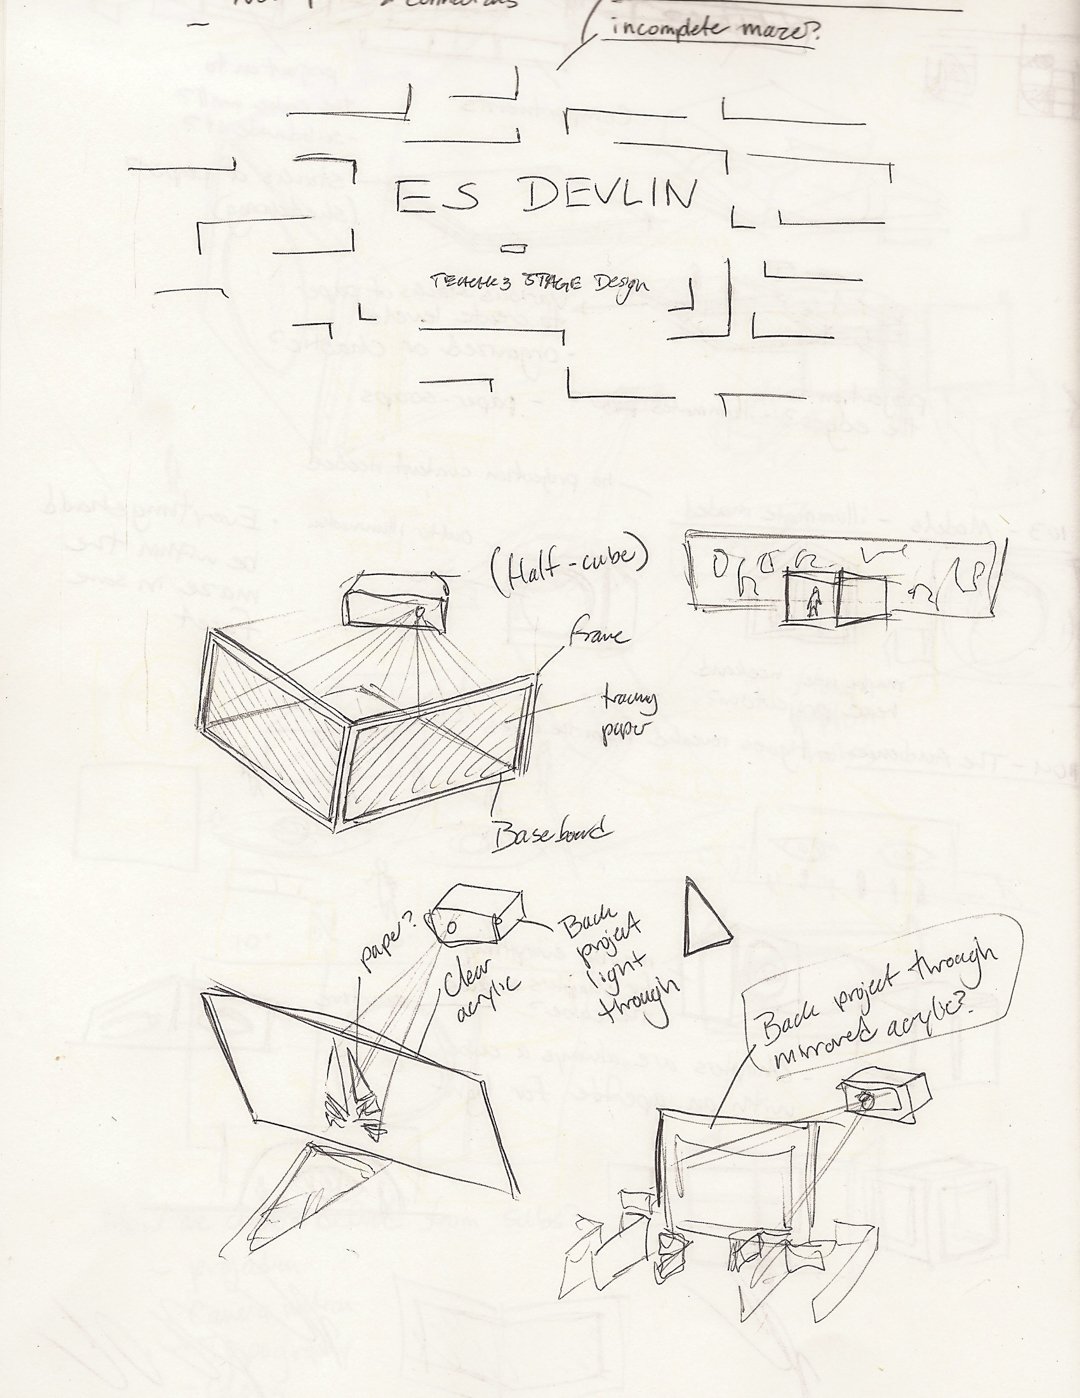 & connections
incomplete maze?
ES DEVLIN
STAGE Design
(Half-cube)
frame
tracing
paper
Baseboard
paper?
Clear
acrylic
Back
project
light
through
Back project through
mirrored acrylic?